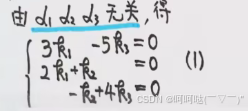 由 α₁ α₂ α₃ 无关, 得
3k₁ -5k₃=0
2k₁+k₂ =0 (1)
-k₂+4k₃=0
CSDN @呵呵哒(￣▽￣)"